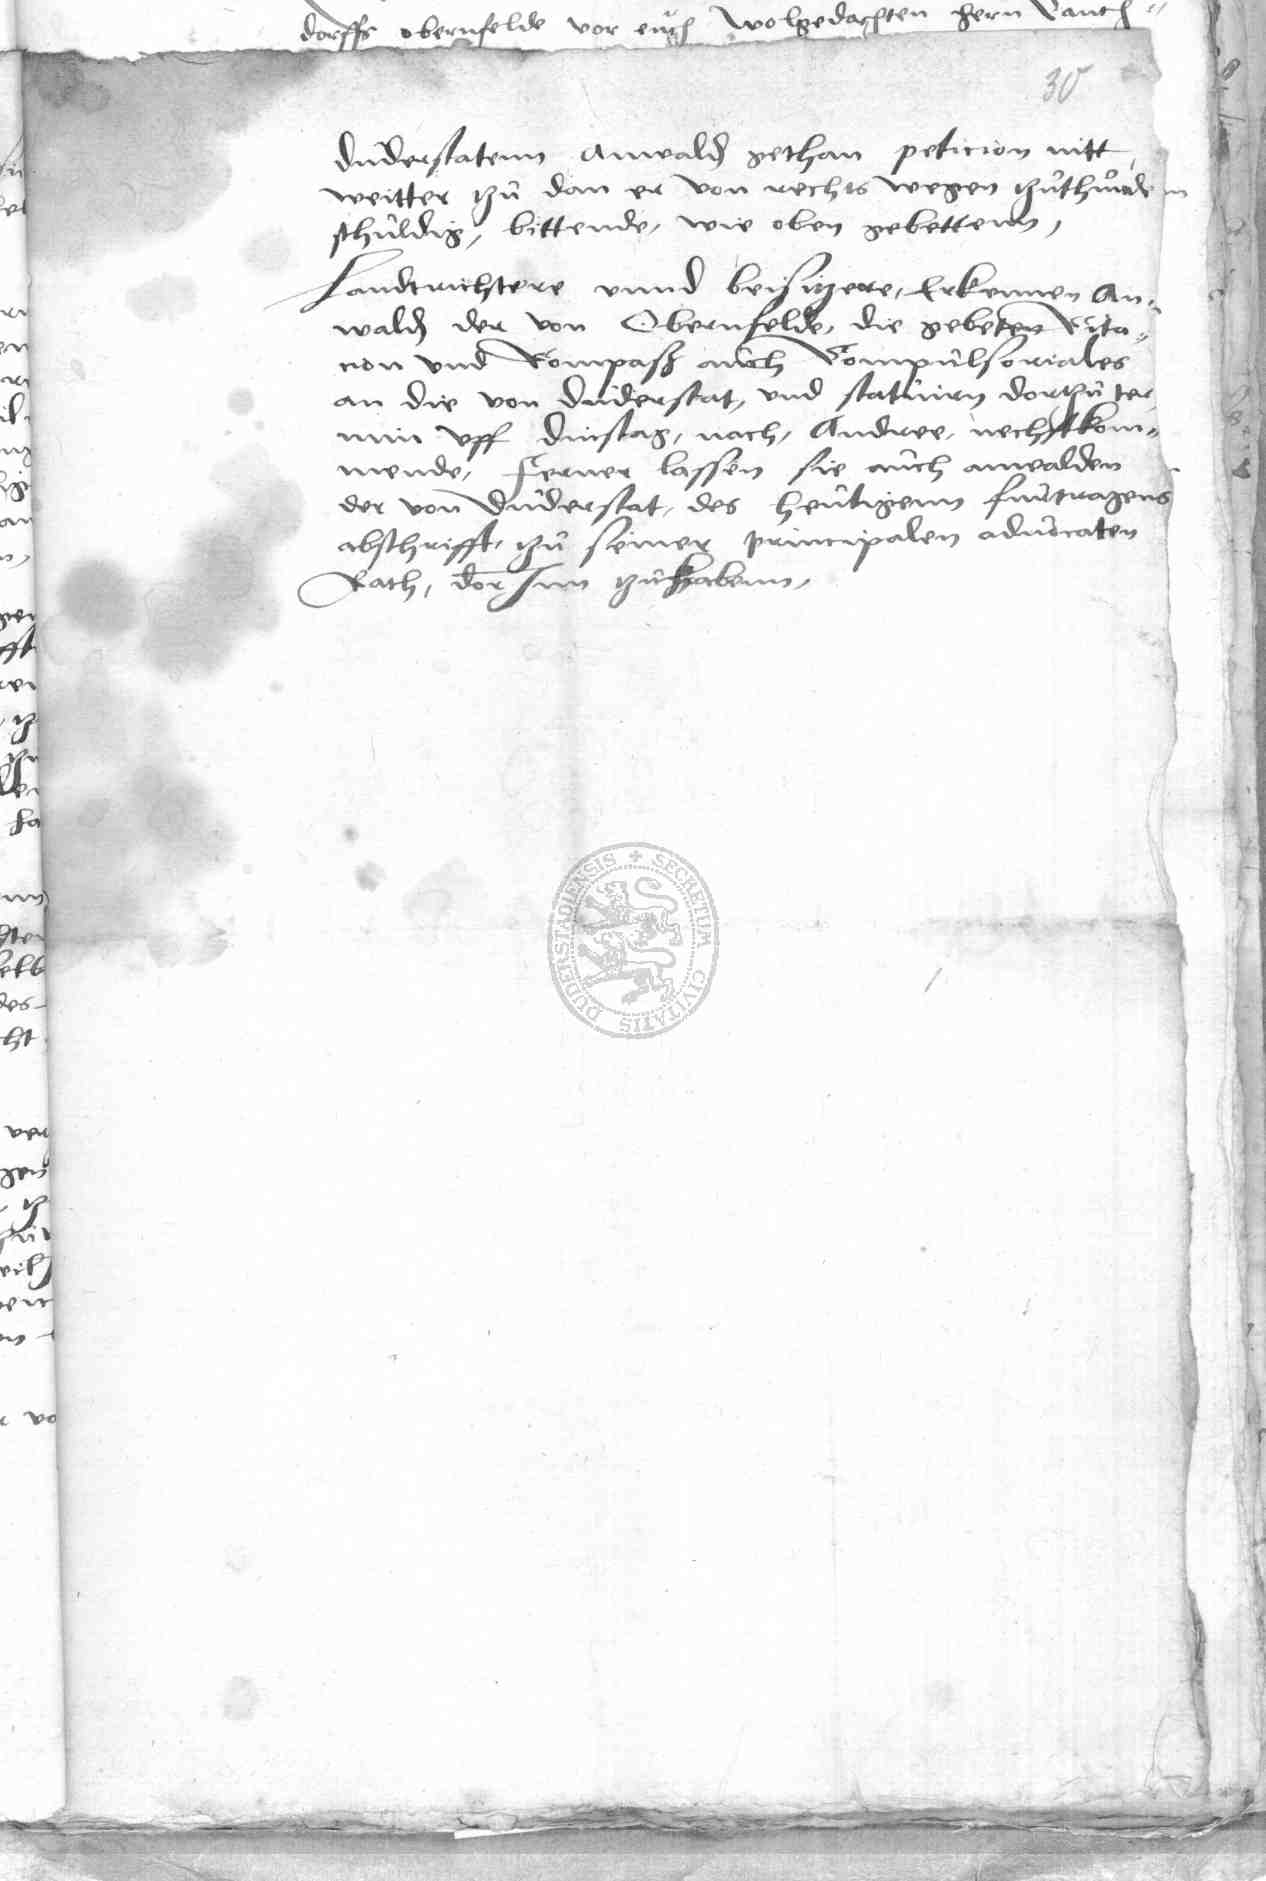 dorffs obernfelde vor euch wolgedachten hern Landt=
30
Duderstatenn Anwald gethan peticion nitt
weitter tzu dan er von rechts wegen tzuthu
schuldig, bittende, wie oben gebettenn,
Landtrichtere vnnd beisitzere, Erkennen An=
wald der von Obernfelde, die gebeten Cita=
cion vnd Compass auch Compulsoriales
an die von Duderstat, vnd statuirn dortzu ter
min vff dinstag, nach, Andree, nechstkom=
mende, Ferner lassen sie auch anwalden
der von Duderstat, des heutigenn furtragens
abschrifft, tzu seiner principalen aduocaten
Rath, dor Inn tzuhabenn,
DUDERSTADIENSIS + SECRETUM CIVITATIS